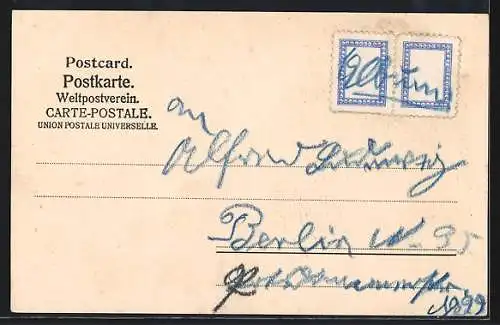 Postcard.
Postkarte.
Weltpostverein.
CARTE-POSTALE.
UNION POSTALE UNIVERSELLE.
an
Alfred Ludwig
Berlin W. 35
1899